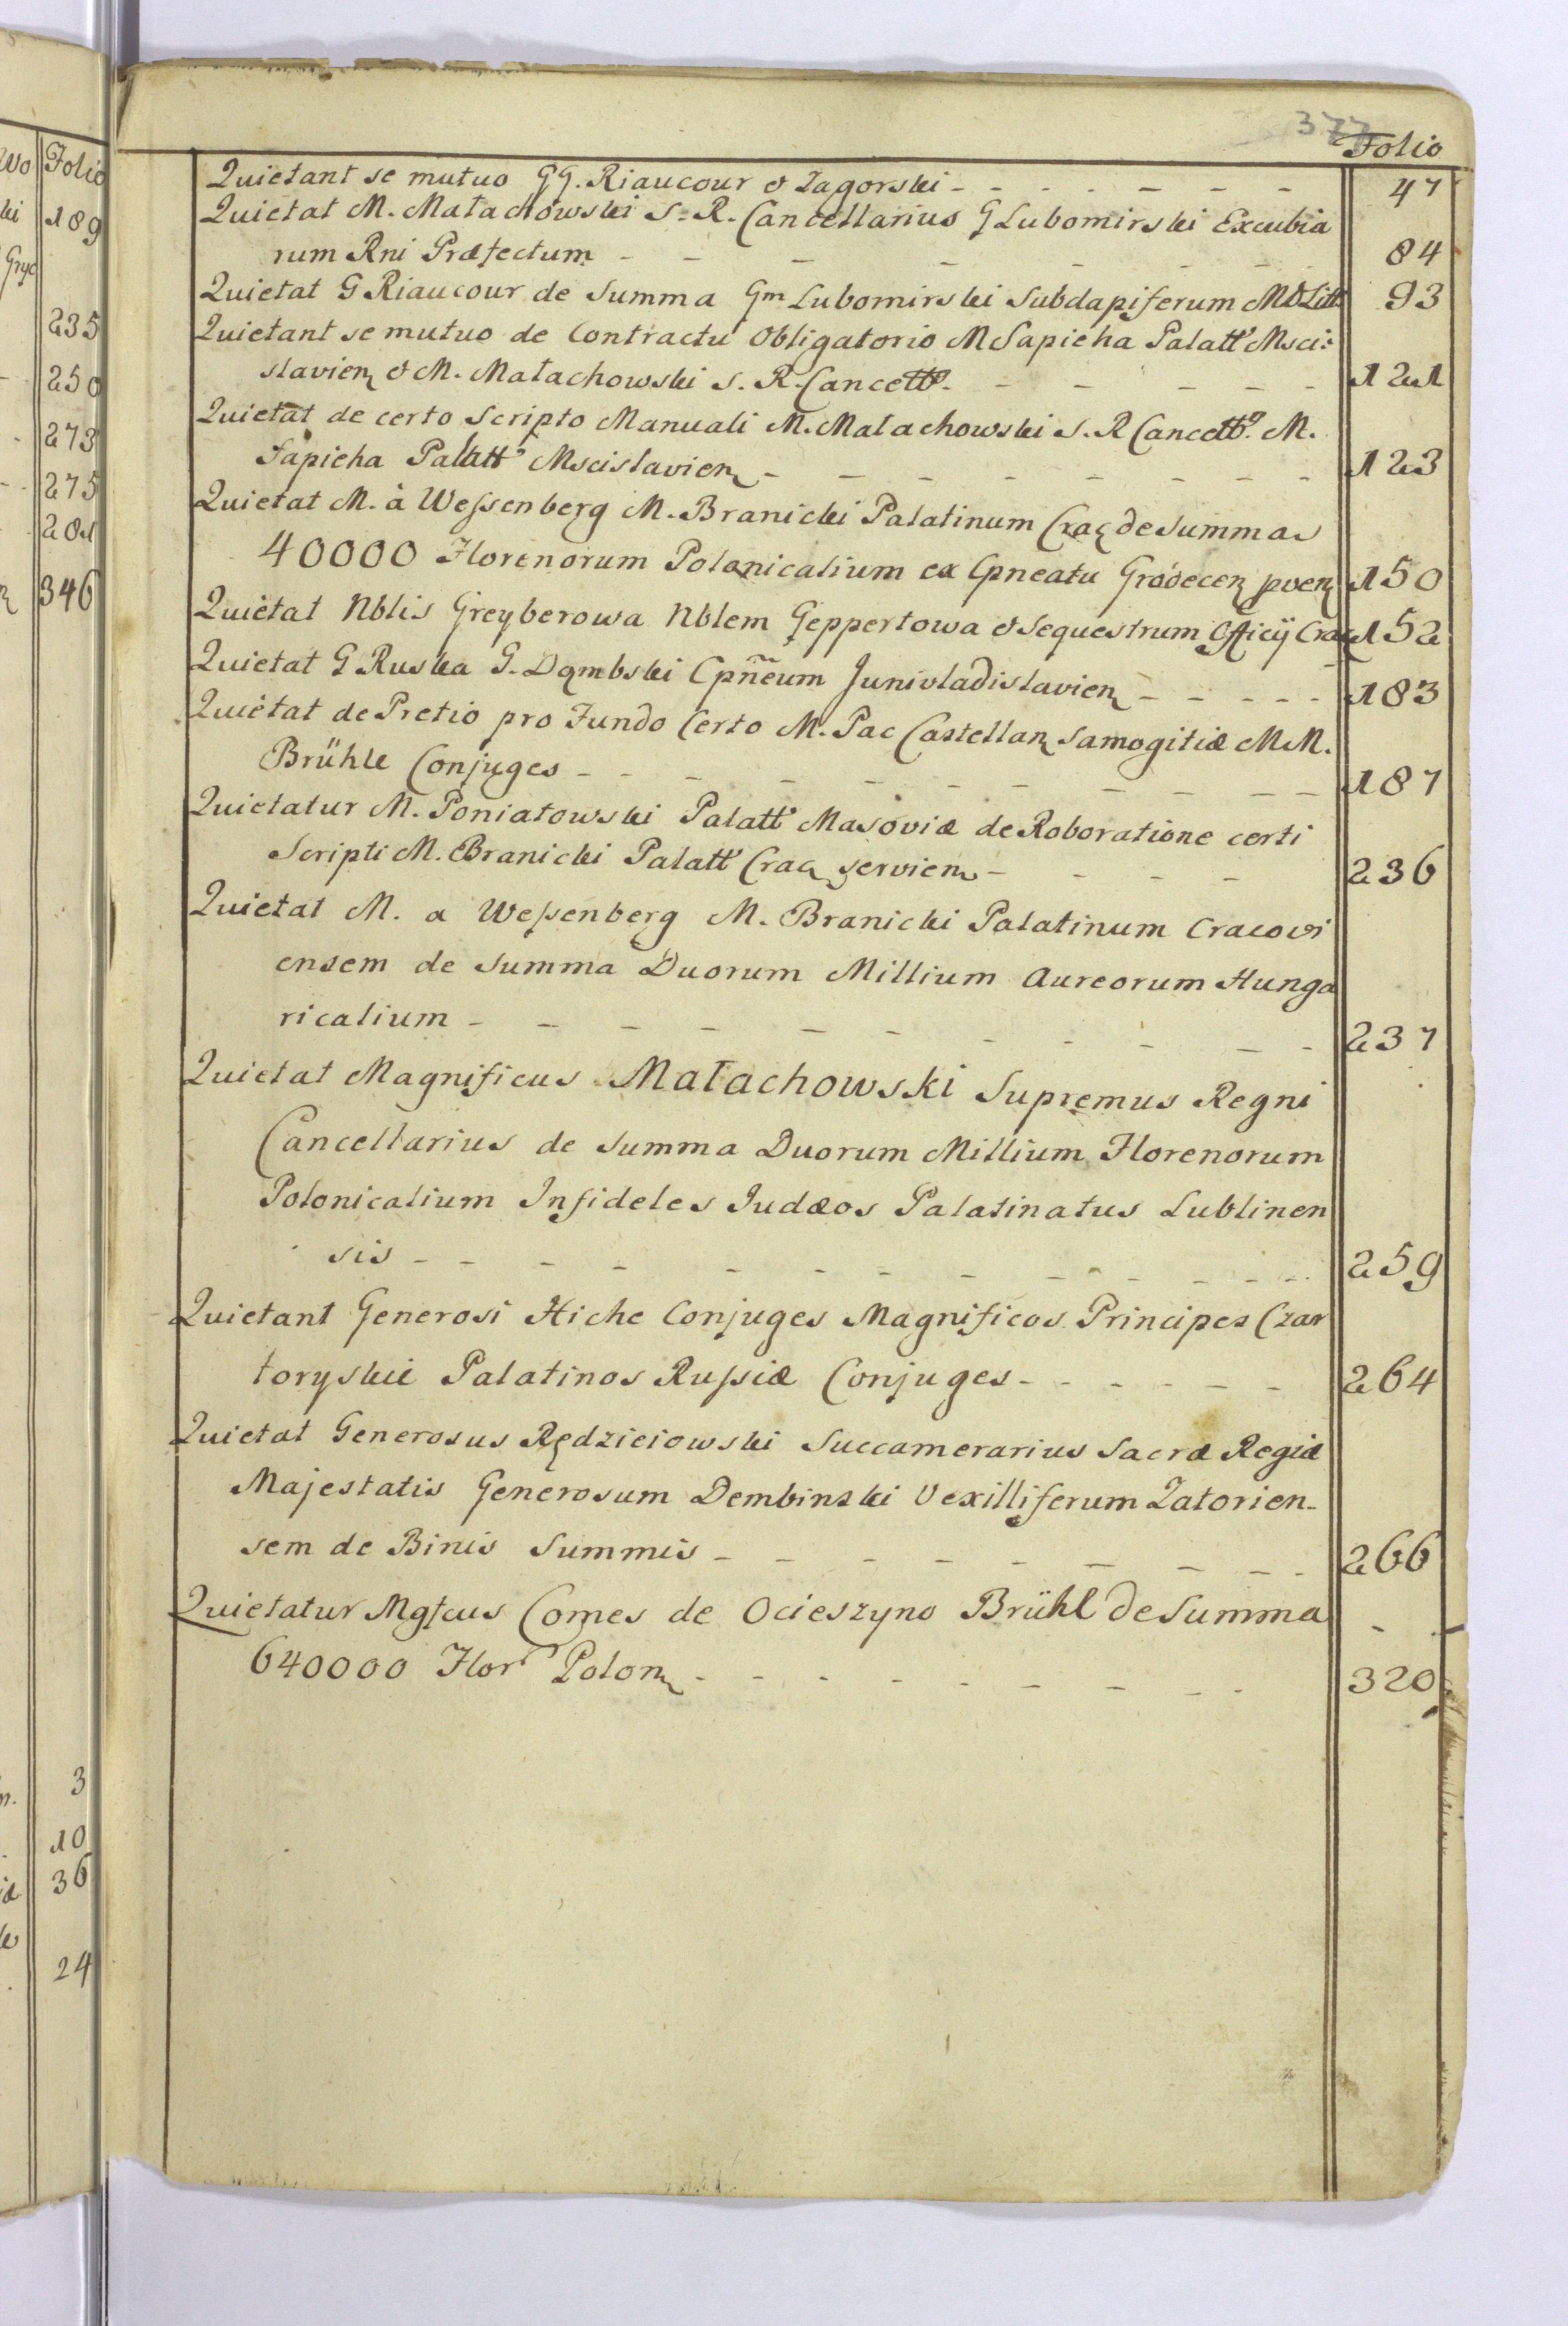 377
Folio
Quietant se mutuo GG. Riaucour & Zagorski - - - - - - - 47
Quietat M. Małachowski S. R. Cancellarius G Lubomirski Excubia
rum Rni Præfectum - - - - - - - 84
Quietat G Riaucour de Summa Gm Lubomirski Subdapiferum MDLitt 93
Quietant se mutuo de Contractu Obligatorio M Sapieha Palatt Msci:
slavien & M. Małachowski S. R. Cancett. - - - - - 121
Quietat de certo Scripto Manuali M. Małachowski S. R Cancett. M.
Sapieha Palatt Mscislavien - - - - - - - - 123
Quietat M. à Wessenberg M. Branicki Palatinum Crac de Summa
40000 Florenorum Polonicalium ex Cpneatu Gródecen pven 150
Quietat Nblis Greyberowa Nblem Geppertowa & Sequestrum Officij Crac 152
Quietat G Ruska G. Dąmbski Cpñeum Junivladislavien - - - - - 183
Quietat de Pretio pro Fundo Certo M. Pac Castellan Samogitiæ MM.
Brühle Conjuges - - - - - - - - - - 187
Quietatur M. Poniatowski Palatt Masoviæ de Roboratione certi
Scripti M. Branicki Palatt Crac servien - - - - 236
Quietat M. a Wessenberg M. Branicki Palatinum Cracovi
ensem de Summa Duorum Millium Aureorum Hunga
ricalium - - - - - - - - - - - 237
Quietat Magnificus Małachowski Supremus Regni
Cancellarius de Summa Duorum Millium Florenorum
Polonicalium Infideles Judæos Palatinatus Lublinen
sis - - - - - - - - - - - - - 259
Quietant Generosi Hiche Conjuges Magnificos Principes Czar
toryskie Palatinos Russiæ Conjuges - - - - - - 264
Quietat Generosus Rędzieiowski Succamerarius Sacræ Regiæ
Majestatis Generosum Dembinski Vexilliferum Zatorien-
sem de Binis Summis - - - - - - - - 266
Quietatur Mgfcus Comes de Ocieszyno Brühl de Summa
640000 Flor Polon - - - - - - - - 320
Folio
189
235
250
273
275
281
346
3
10
36
24